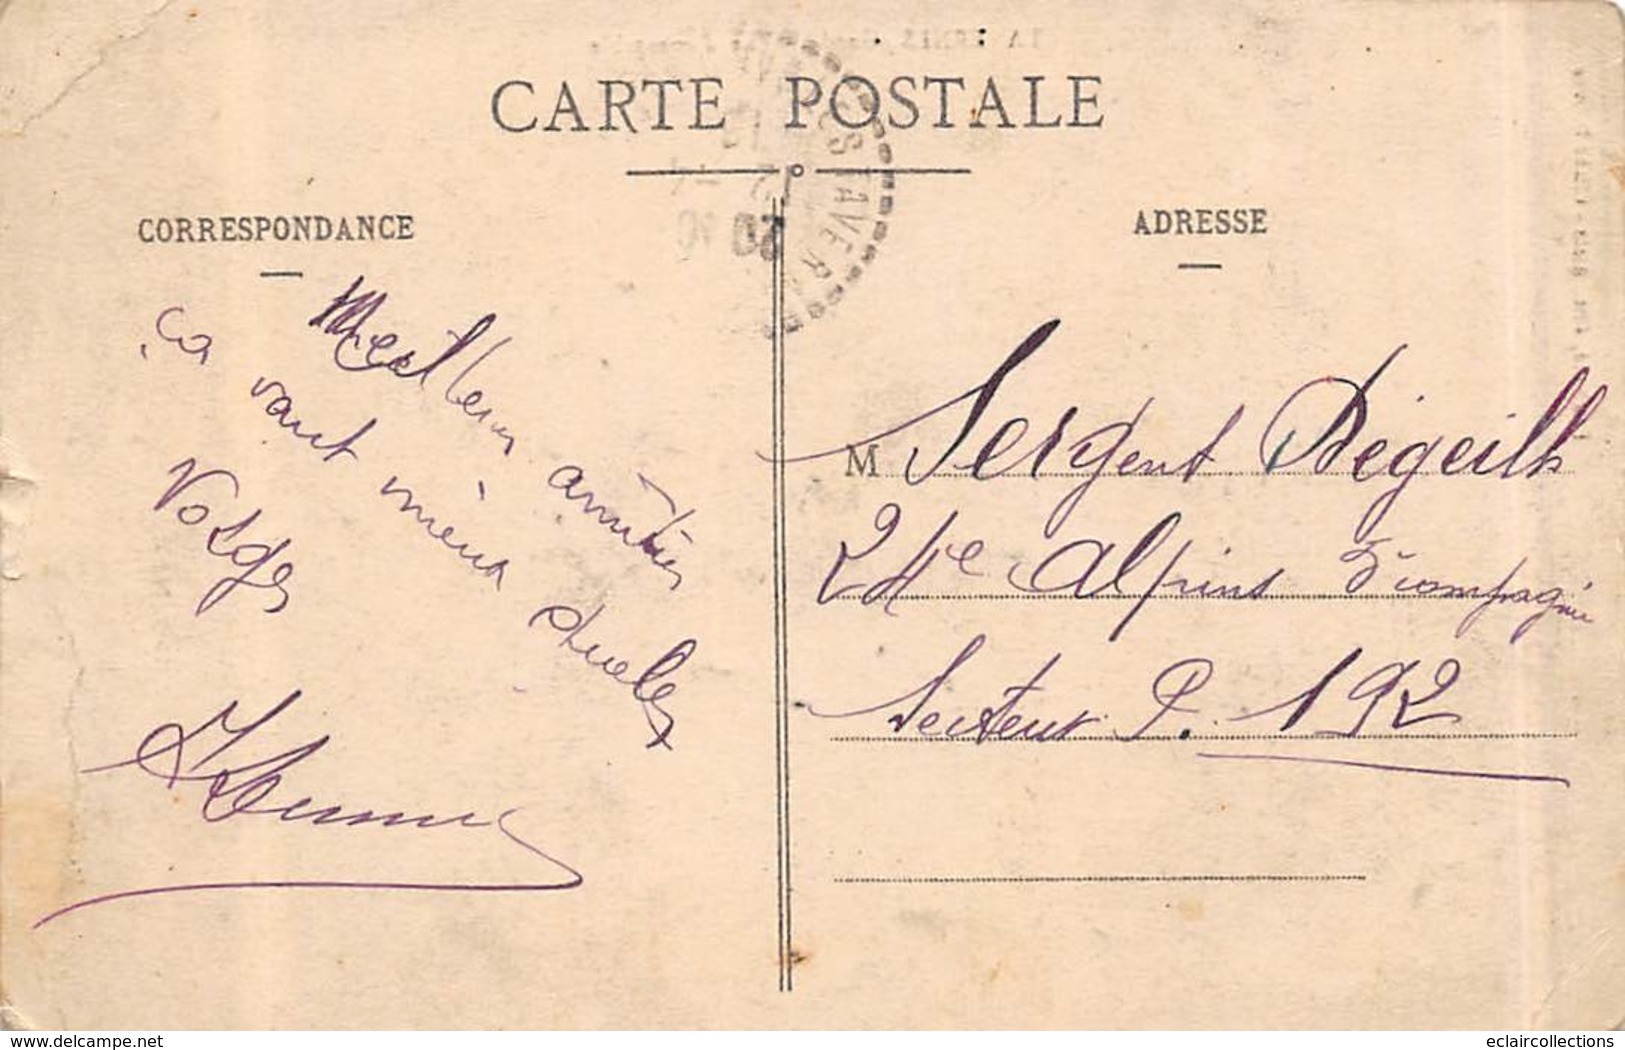 CARTE POSTALE
CORRESPONDANCE
Meilleurs amitiés
ça vaut mieux
Vosges
ADRESSE
M Sergent Régeilh
24e Alpins 5e compagnie
Secteur P. 192
www.delcampe.net
eclaircollections